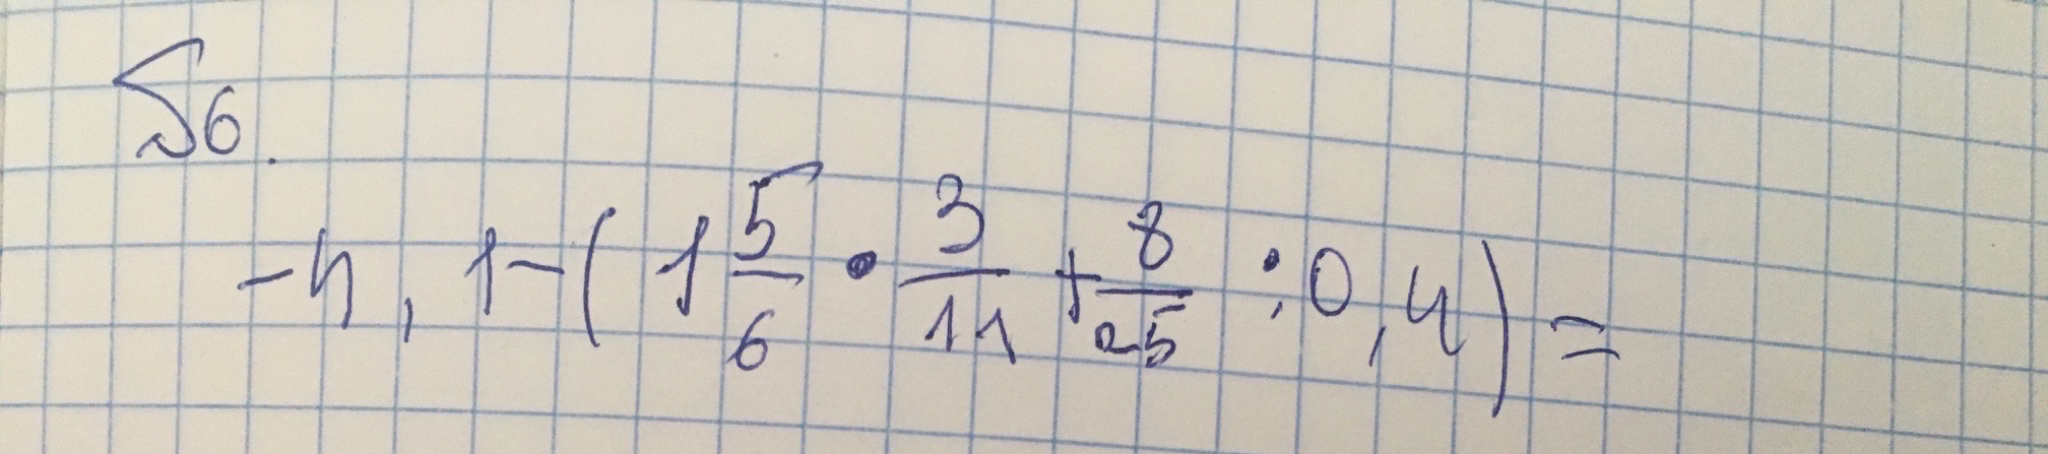 56.
-4,1-(1 5/6 • 3/11 + 8/25 : 0,4) =